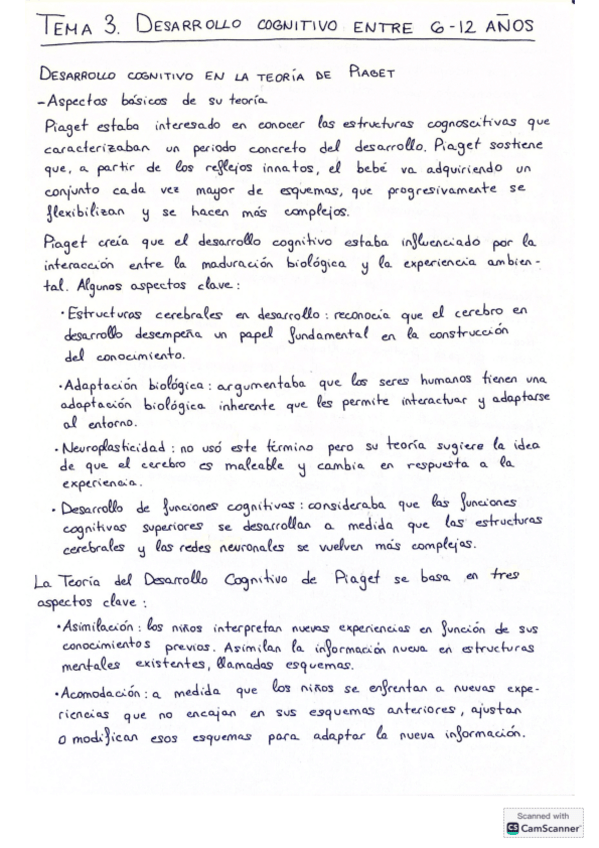 TEMA 3. DESARROLLO COGNITIVO ENTRE 6-12 AÑOS
DESARROLLO COGNITIVO EN LA TEORÍA DE PIAGET
- Aspectos básicos de su teoría
Piaget estaba interesado en conocer las estructuras cognoscitivas que
caracterizaban un periodo concreto del desarrollo. Piaget sostiene
que, a partir de los reflejos innatos, el bebé va adquiriendo un
conjunto cada vez mayor de esquemas, que progresivamente se
flexibilizan y se hacen más complejos.
Piaget creía que el desarrollo cognitivo estaba influenciado por la
interacción entre la maduración biológica y la experiencia ambien-
tal. Algunos aspectos clave:
· Estructuras cerebrales en desarrollo: reconocía que el cerebro en
desarrollo desempeña un papel fundamental en la construcción
del conocimiento.
· Adaptación biológica: argumentaba que los seres humanos tienen una
adaptación biológica inherente que les permite interactuar y adaptarse
al entorno.
· Neuroplasticidad: no usó este término pero su teoría sugiere la idea
de que el cerebro es maleable y cambia en respuesta a la
experiencia.
· Desarrollo de funciones cognitivas: consideraba que las funciones
cognitivas superiores se desarrollan a medida que las estructuras
cerebrales y las redes neuronales se vuelven más complejas.
La Teoría del Desarrollo Cognitivo de Piaget se basa en tres
aspectos clave:
· Asimilación: los niños interpretan nuevas experiencias en función de sus
conocimientos previos. Asimilan la información nueva en estructuras
mentales existentes, llamadas esquemas.
· Acomodación: a medida que los niños se enfrentan a nuevas expe-
riencias que no encajan en sus esquemas anteriores, ajustan
o modifican esos esquemas para adaptar la nueva información.
Scanned with
CS CamScanner